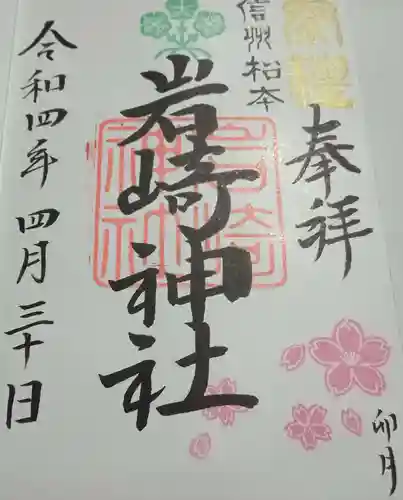 信州松本
奉拝
岩崎神社
岩崎神社
令和四年 四月 三十日
卯月